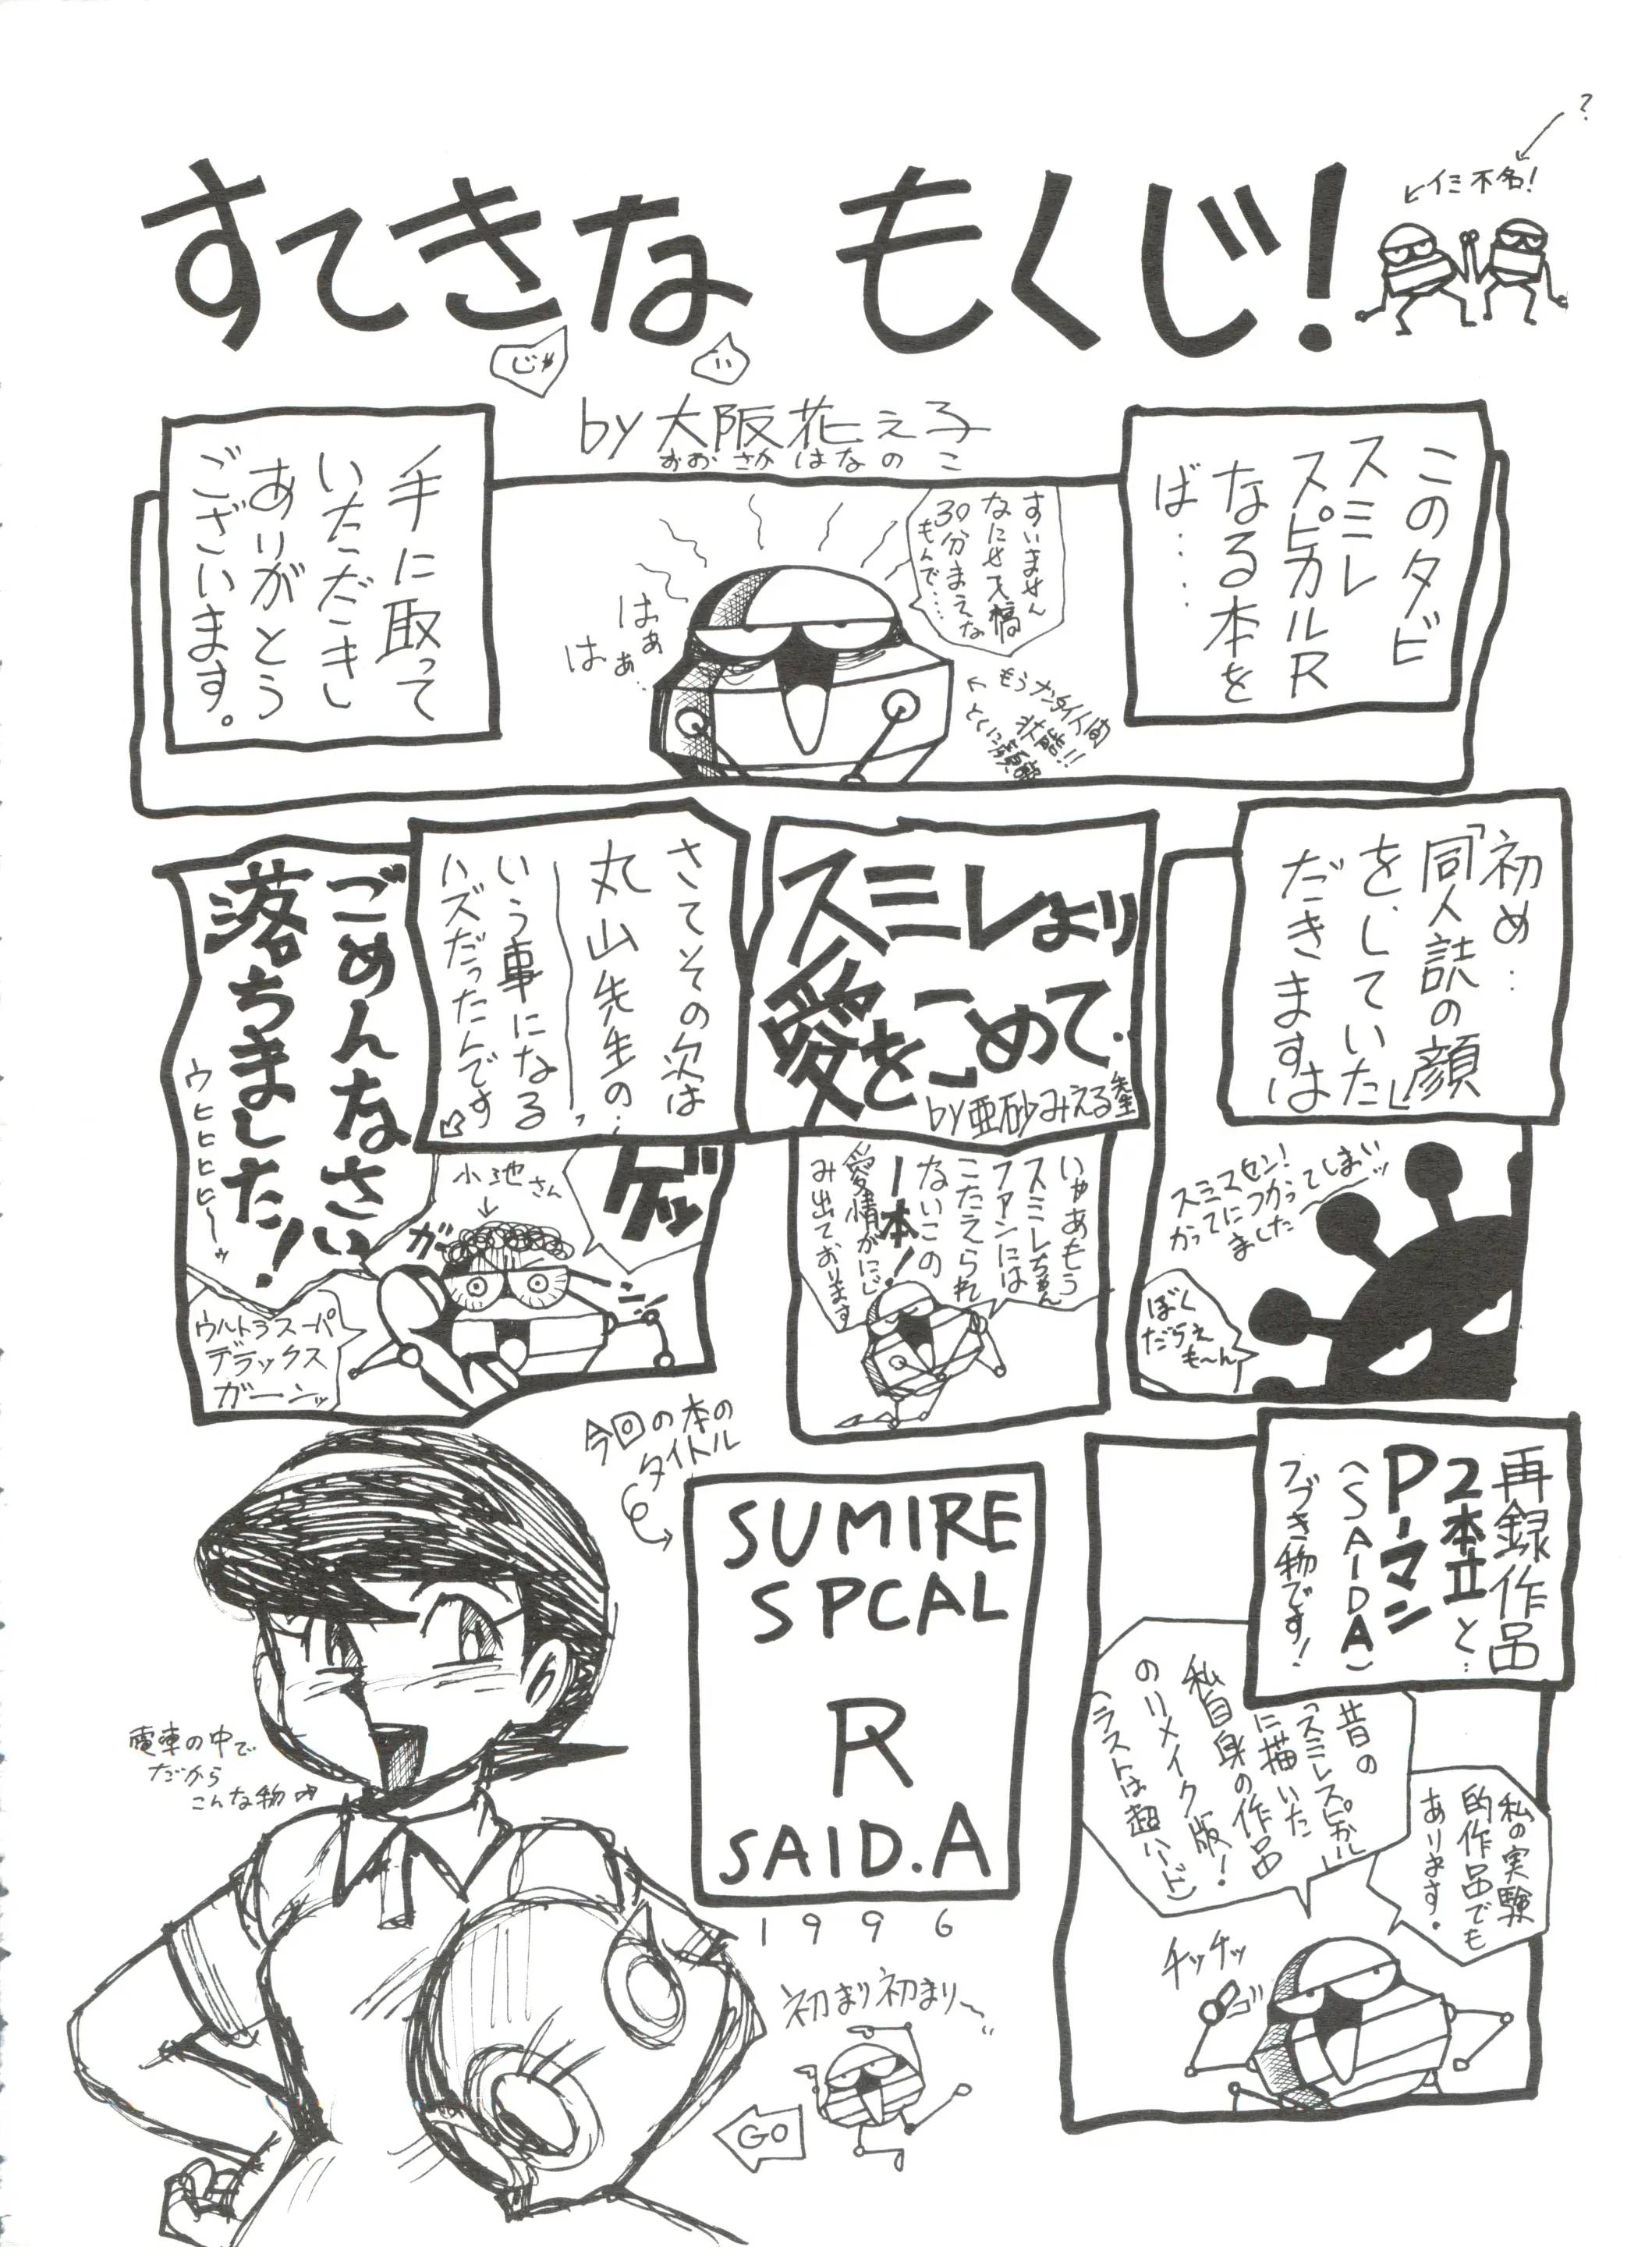 すてきな もくじ!
?
イミ不名!
じゃ
by 大阪花え子
おおさかはなのこ
このタビ
スミレ
スピカルR
なる本を
ば……
すいません
なにせ入稿
30分まえな
もんで……
はぁ
はぁ…
もうナンダイ人間
状態!!
とくに顔部
手に取って
いただきし
ありがとう
ございます。
初め…
「同人誌の顔
をしていた」
だきますは
スミマセン!
かってにつかってしまいッ
ました
ぼく
だらえ
も〜ん
スミレより
愛をこめて.
by亜砂みえる先生
いやあもう
スミレちゃん
ファンには
こたえられ
ないこの
1本!
愛情がにじ
み出ております
さてその次は
丸山先生の…
いう事になる
ハズだったんです
ごめんなさい
落ちました!
ウヒヒヒヒ〜ッ
ゲッ
小池さん
ガ
ーン
ウルトラスーパ
デラックス
ガーンッ
再録作品
2本立と…
P-マン
(SAIDA)
フづき物です!
昔の
「スミレスピカル」
に描いた
私自身の作品
のリメイク版!
(ラストは超ハード)
私の実験
的作品でも
あります。
チッチッ
今回の本の
タイトル
SUMIRE
SPCAL
R
SAID.A
1996
電車の中で
だから
こんな物
初まり初まり〜
GO